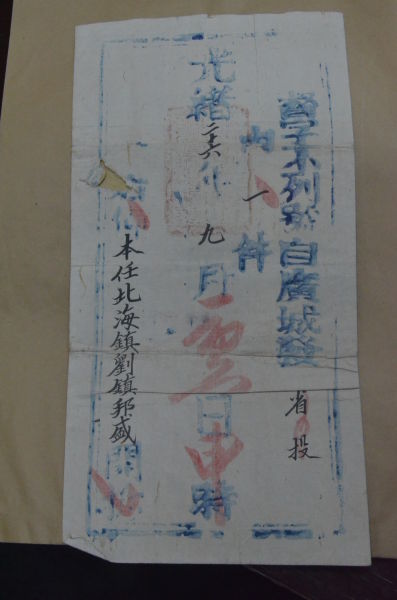 督字不列號自廣城發
省投
內一件
光緒二十六年九月初四日申時
本任北海鎮劉鎮邦盛